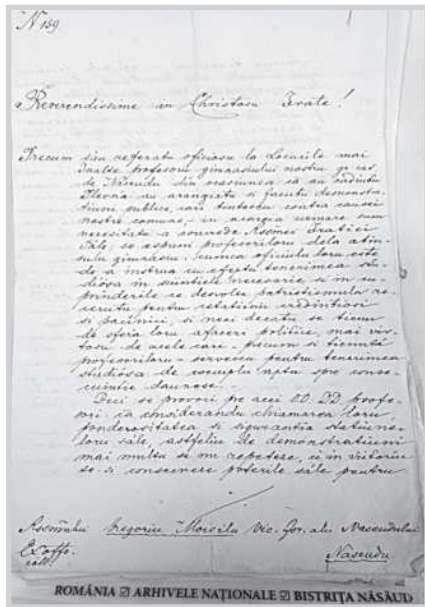 N 159.
Reverendissime in Christosu Frate!
Precum sau referatu oficiosu la Locurile mai
inalte profesorii gimnasiului nostru gr. cat.
de Nasendu din ocasiunea că au cadiutu
Plevna au arangiatu si facutu demonstra-
tiuni publice, cari contra causei
nostre comune, in acarga urmare
necesitate a concrede Rssimei Fratiei
Tale, se espuni profesoriloru dela atin-
sulu gimnasiu, cumca oficiulu loru este
de a instrua cu efeptu tenerimea stu-
diosa in scientiele necesarie, si in cu-
prinderile ce desvolta patriotismulu re-
cerutu pentru cetatiani credintiosi
si pacinici, si neci decatu se tienu
de sfera loru afaceri politice, mai vir-
tosu de acele cari precum si tienuta
profesoriloru servescu pentru tenerimea
studiosa de esemplu aptu spre conse-
cuintie daunose.
Deci se provoci pre acei DD. profe-
sori, ca considerandu chiamarea loru
ponderositatea si sigurantia statiunei
loru sale, astfeliu de demonstratiuni
mai multu se nu repetesce, ci in viitoriu
se-si consacreze poterile sale pentru
Assimului Gregoriu Moisilu Vic. for. alu Nasendului
Ex offo.
Nasendu
ROMÂNIA ARHIVELE NAȚIONALE BISTRIȚA NĂSĂUD